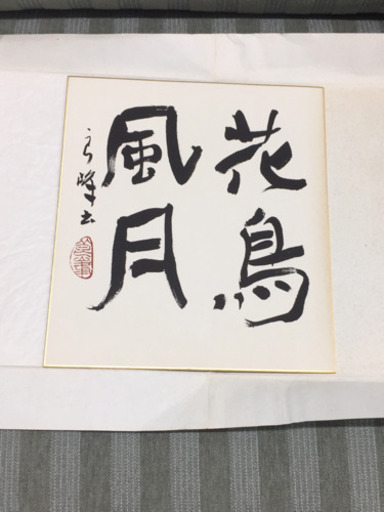 花鳥
風月
峰書